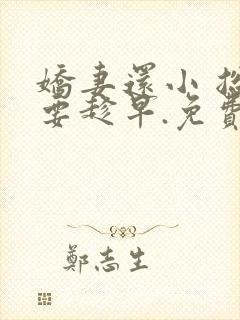 嬌妻還小
要趁早.免費
鄭志生